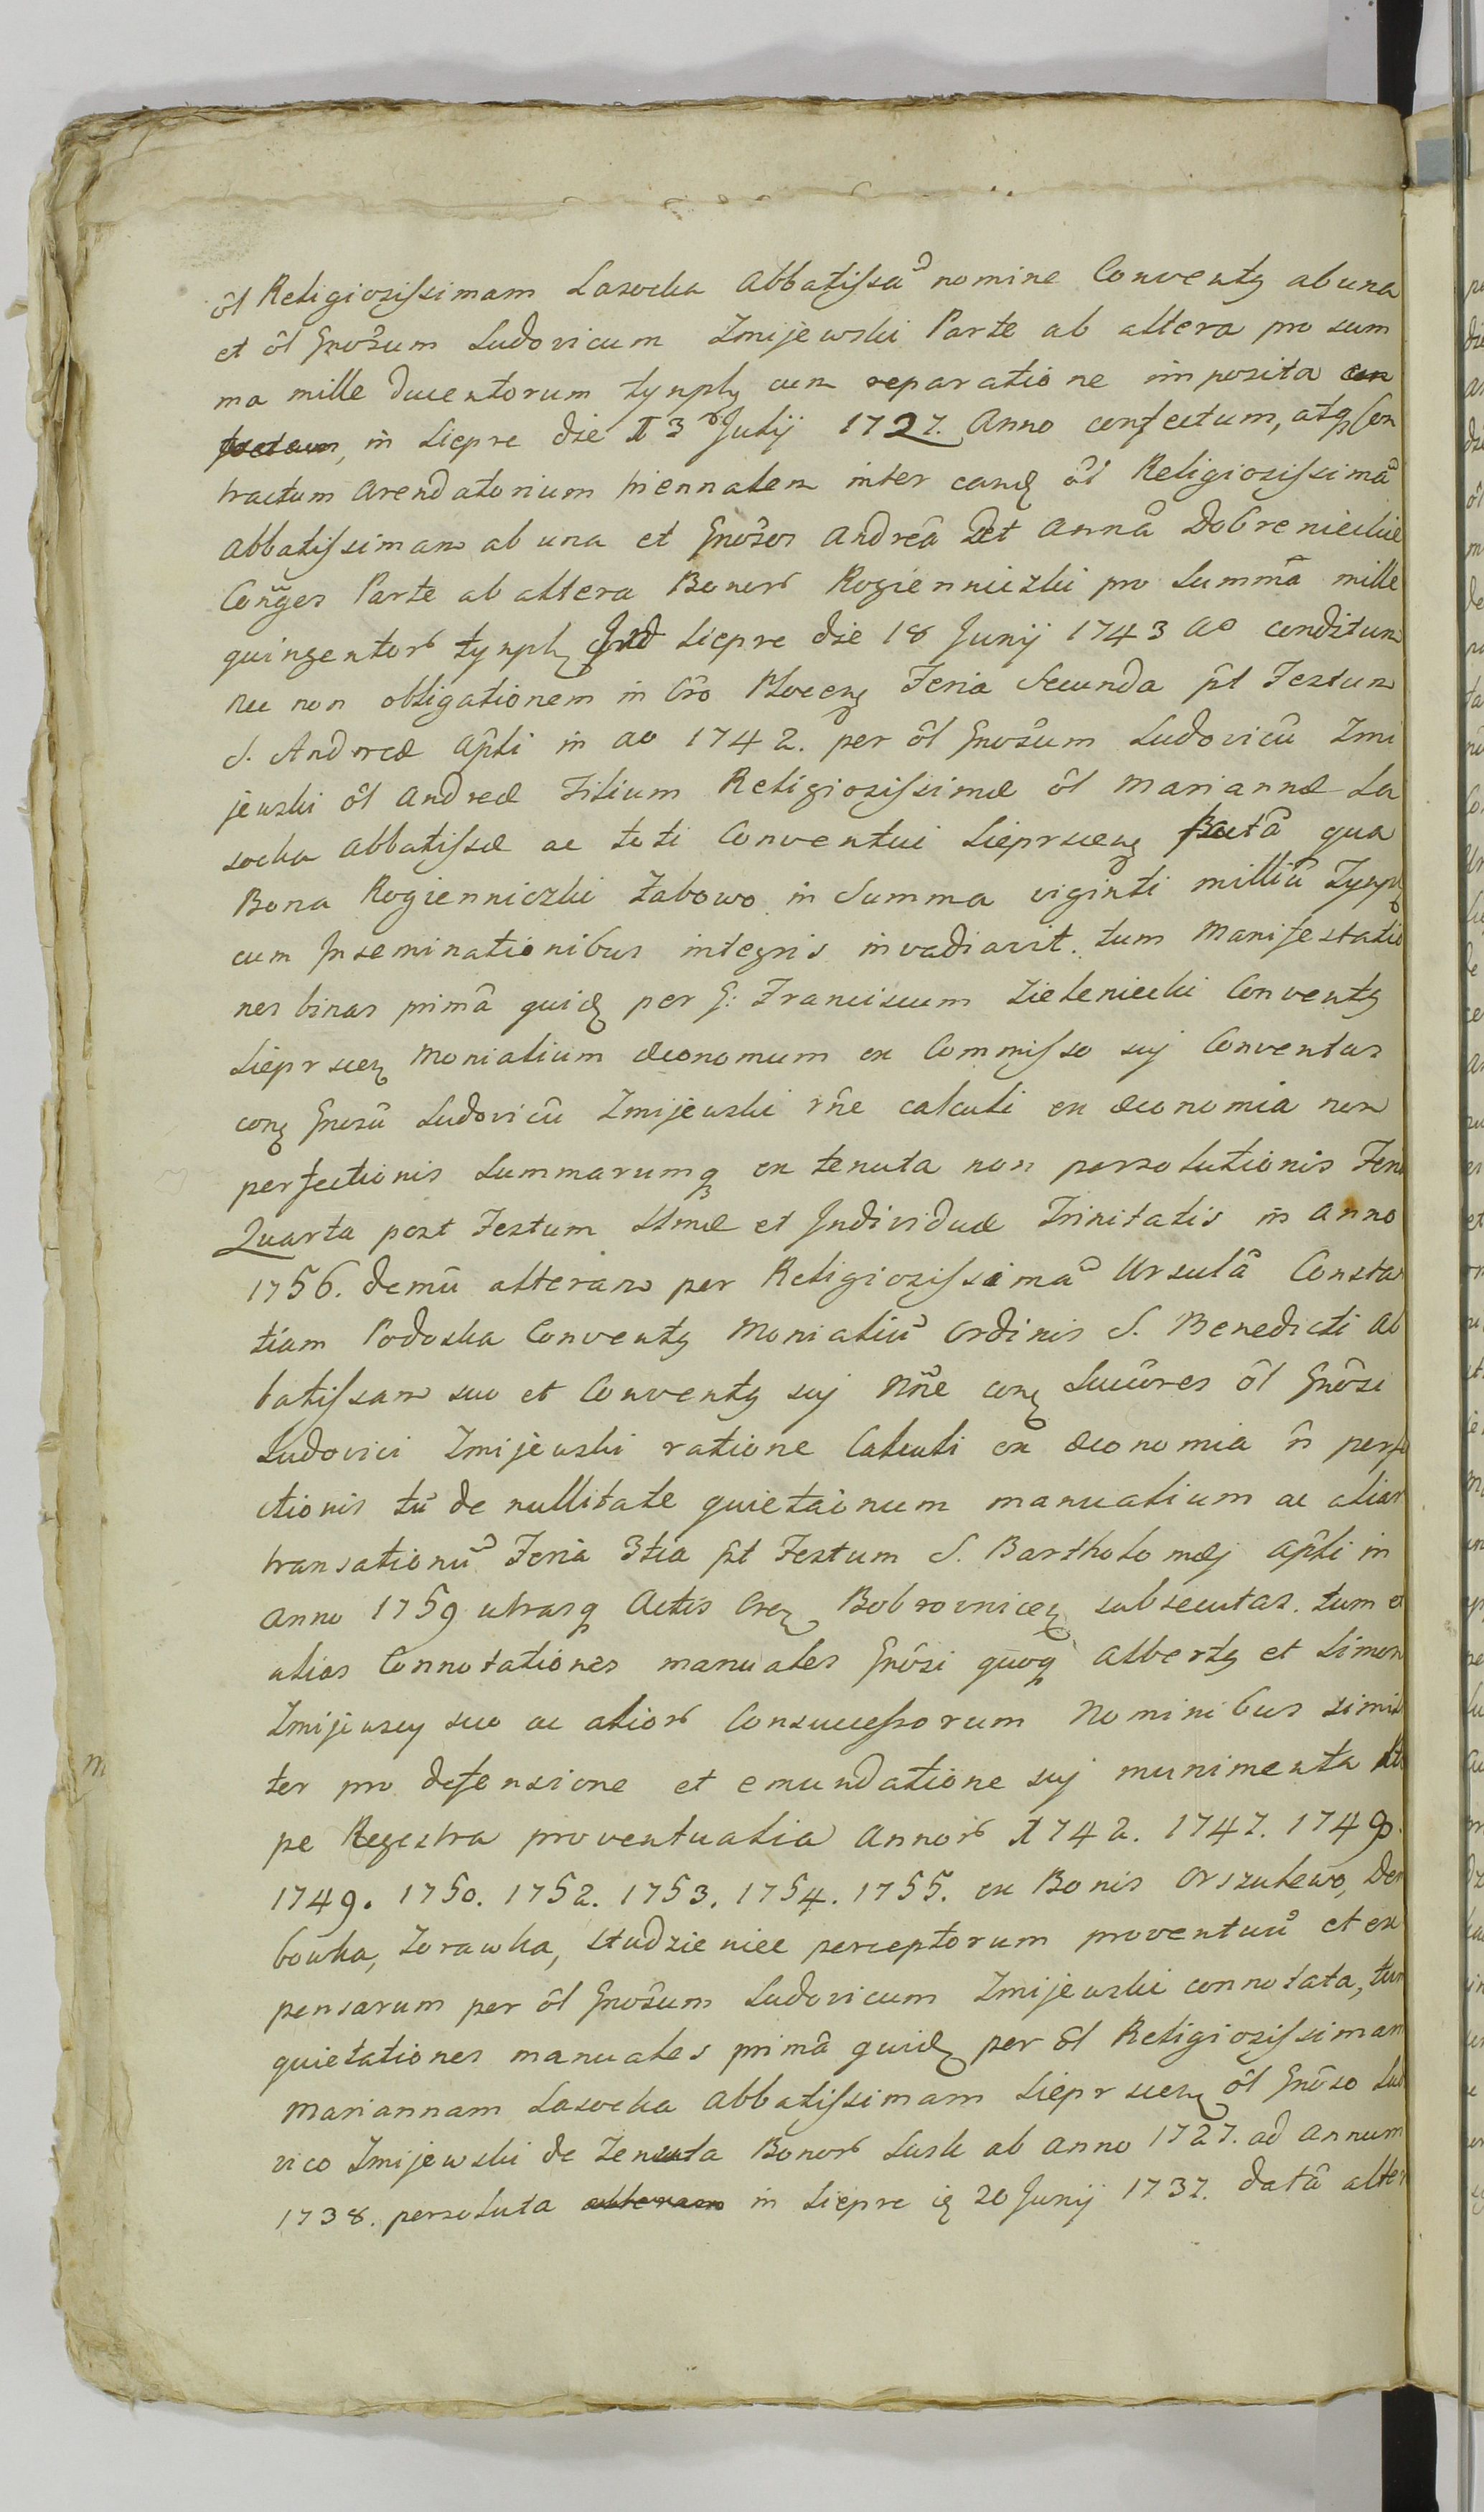 ôl Religiosissimam Lasocka Abbatissâ nomine Conventꝯ ab una
et ôl Gnôsum Ludovicum Zmijewski Parte ab altera pro sum
ma mille ducentorum tynph cum reparatione imposita
in Siepre die 13 Julij 1727. Anno confectum, atqꝫ Con
tractum Arendatorium triennalem inter eand ôl Religiosissimâ
Abbatissimam ab una et Gnôsos Andreâ et Annâ Dobrenieckie
Conges Parte ab altera Bonor Rogienniczki pro Summâ mille
quingentor tynph Siepre die 18 Junij 1743 ao conditum
nec non obligationem in Cro Plocen Feria Secunda pt Festum
S. Andreæ Apli in ao 1742. per ôl Gnôsum Ludovicû Zmi
jewski ôl Andreæ Filium Religiosissimæ ôl Mariannæ La
socka Abbatissæ ac toti Conventui Sieprscen factâ qua
Bona Rogienniczki Zabowo in Summa viginti milliû Tynph
cum Inseminationibus integris invadiavit. tum Manifestatio
nes binas primâ quid per G: Franciscum Zieleniecki Conventꝯ
Sieprscen Monialium œconomum ex Commisso suj Conventus
con Gnosû Ludovicû Zmijewski rñe calculi ex œconomia non
perfectionis Summarumqꝫ ex tenuta non persolutionis Feria
Quarta post Festum Stmæ et Individuæ Trinitatis in Anno
1756. demû alteram per Religiosissimâ Ursulâ Constan
tiam Podoska Conventꝯ Monialiû Ordinis S. Benedicti Ab
batissam suo et Conventꝯ suj Nñe con Succôres ôl Gnôsi
Ludovici Zmijewski ratione Calculi ex œconomia ñ perfe
ctionis tû de nullitate quietaõnum manualium ac alias
transationû Feria 3tia pt Festum S. Bartholomæj Apli in
Anno 1759 utrasqꝫ Actis Cren Bobrovnicen subsecutas. tum et
alias Connotationes manuales Gnôsi quoqꝫ Albertꝯ et Simon
Zmijewscy suo ac alior Consuccessorum Nominibus simili
ter pro defensione et emundatione suj munimenta
pe Regestra proventualia Annor 1742. 1747. 1749.
1749. 1750. 1752. 1753. 1754. 1755. ex Bonis Orszulewo, Dem
bowka, Zorawka, Studzieniec perceptorum proventuû et ex
pensarum per ôl Gnôsum Ludovicum Zmijewski connotata, tum
quietationes manuales primâ quid per ôl Religiosissimam
Mariannam Lasocka Abbatissimam Sieprscen ôl Gnôso Ludo
vico Zmijewski de Tenuta Bonor Susk ab anno 1727. ad Annum
1738. persoluta in Siepre 20 Junij 1737. datâ alter